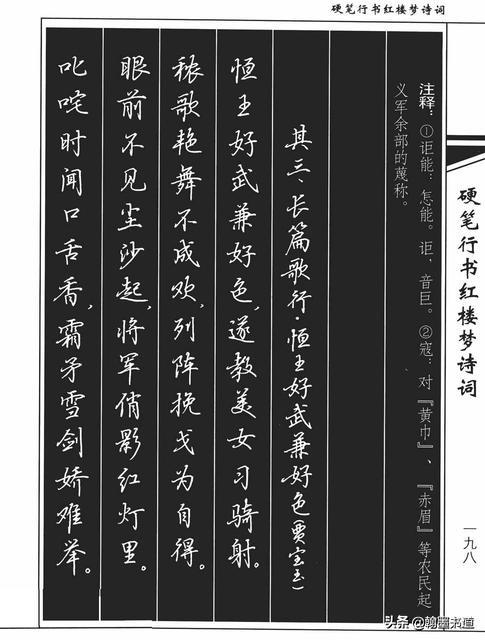 硬笔行书红楼梦诗词
硬笔行书红楼梦诗词
一九八
注释：①讵能：怎能。讵，音巨。②寇：对『黄巾』、『赤眉』等农民起
义军余部的蔑称。
其三、长篇歌行·恒王好武兼好色（贾宝玉）
恒王好武兼好色，遂教美女习骑射。
秾歌艳舞不成欢，列阵挽戈为自得。
眼前不见尘沙起，将军俏影红灯里。
叱咤时闻口舌香，霜矛雪剑娇难举。
头条@翰墨书道